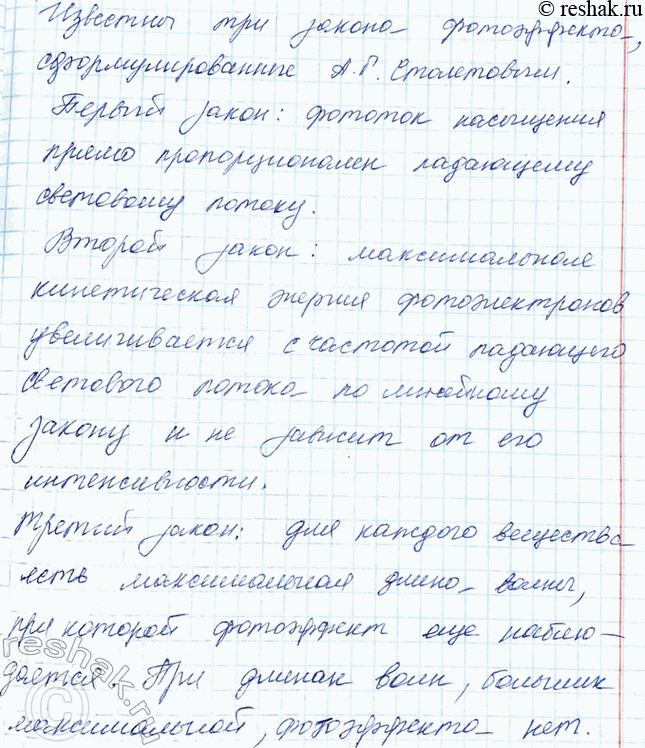 reshak.ru
Известны три закона фотоэффекта,
сформулированные А.Г. Столетовым.
Первый закон: фототок насыщения
прямо пропорционален падающему
световому потоку.
Второй закон: максимальная
кинетическая энергия фотоэлектронов
увеличивается с частотой падающего
светового потока по линейному
закону и не зависит от его
интенсивности.
Третий закон: для каждого вещества
есть максимальная длина волны,
при которой фотоэффект еще наблю-
дается. При длинах волн, больших
максимальной, фотоэффекта нет.
reshak.ru